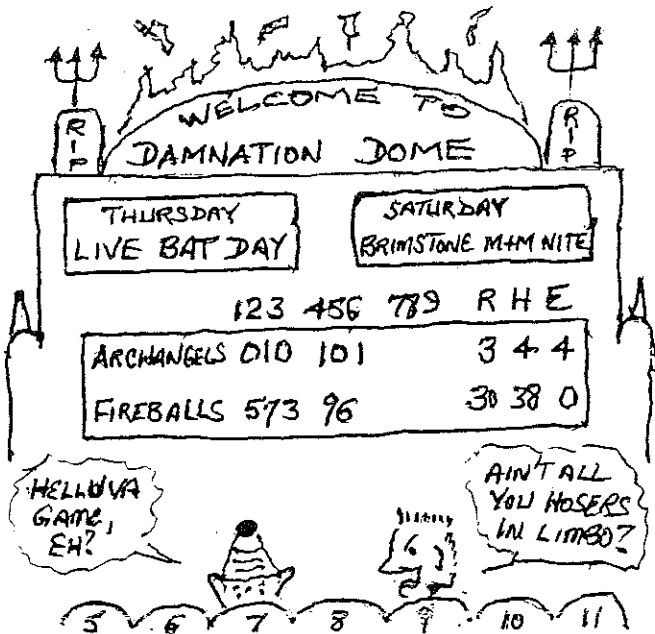 WELCOME TO
DAMNATION DOME
RIP
RIP
THURSDAY
LIVE BAT DAY
SATURDAY
BRIMSTONE M+M NITE
123 456 789 R H E
ARCHANGELS 010 101 3 4 4
FIREBALLS 573 96 30 38 0
HELLUVA
GAME,
EH?
AIN'T ALL
YOU HOSERS
IN LIMBO?
5 6 7 8 9 10 11